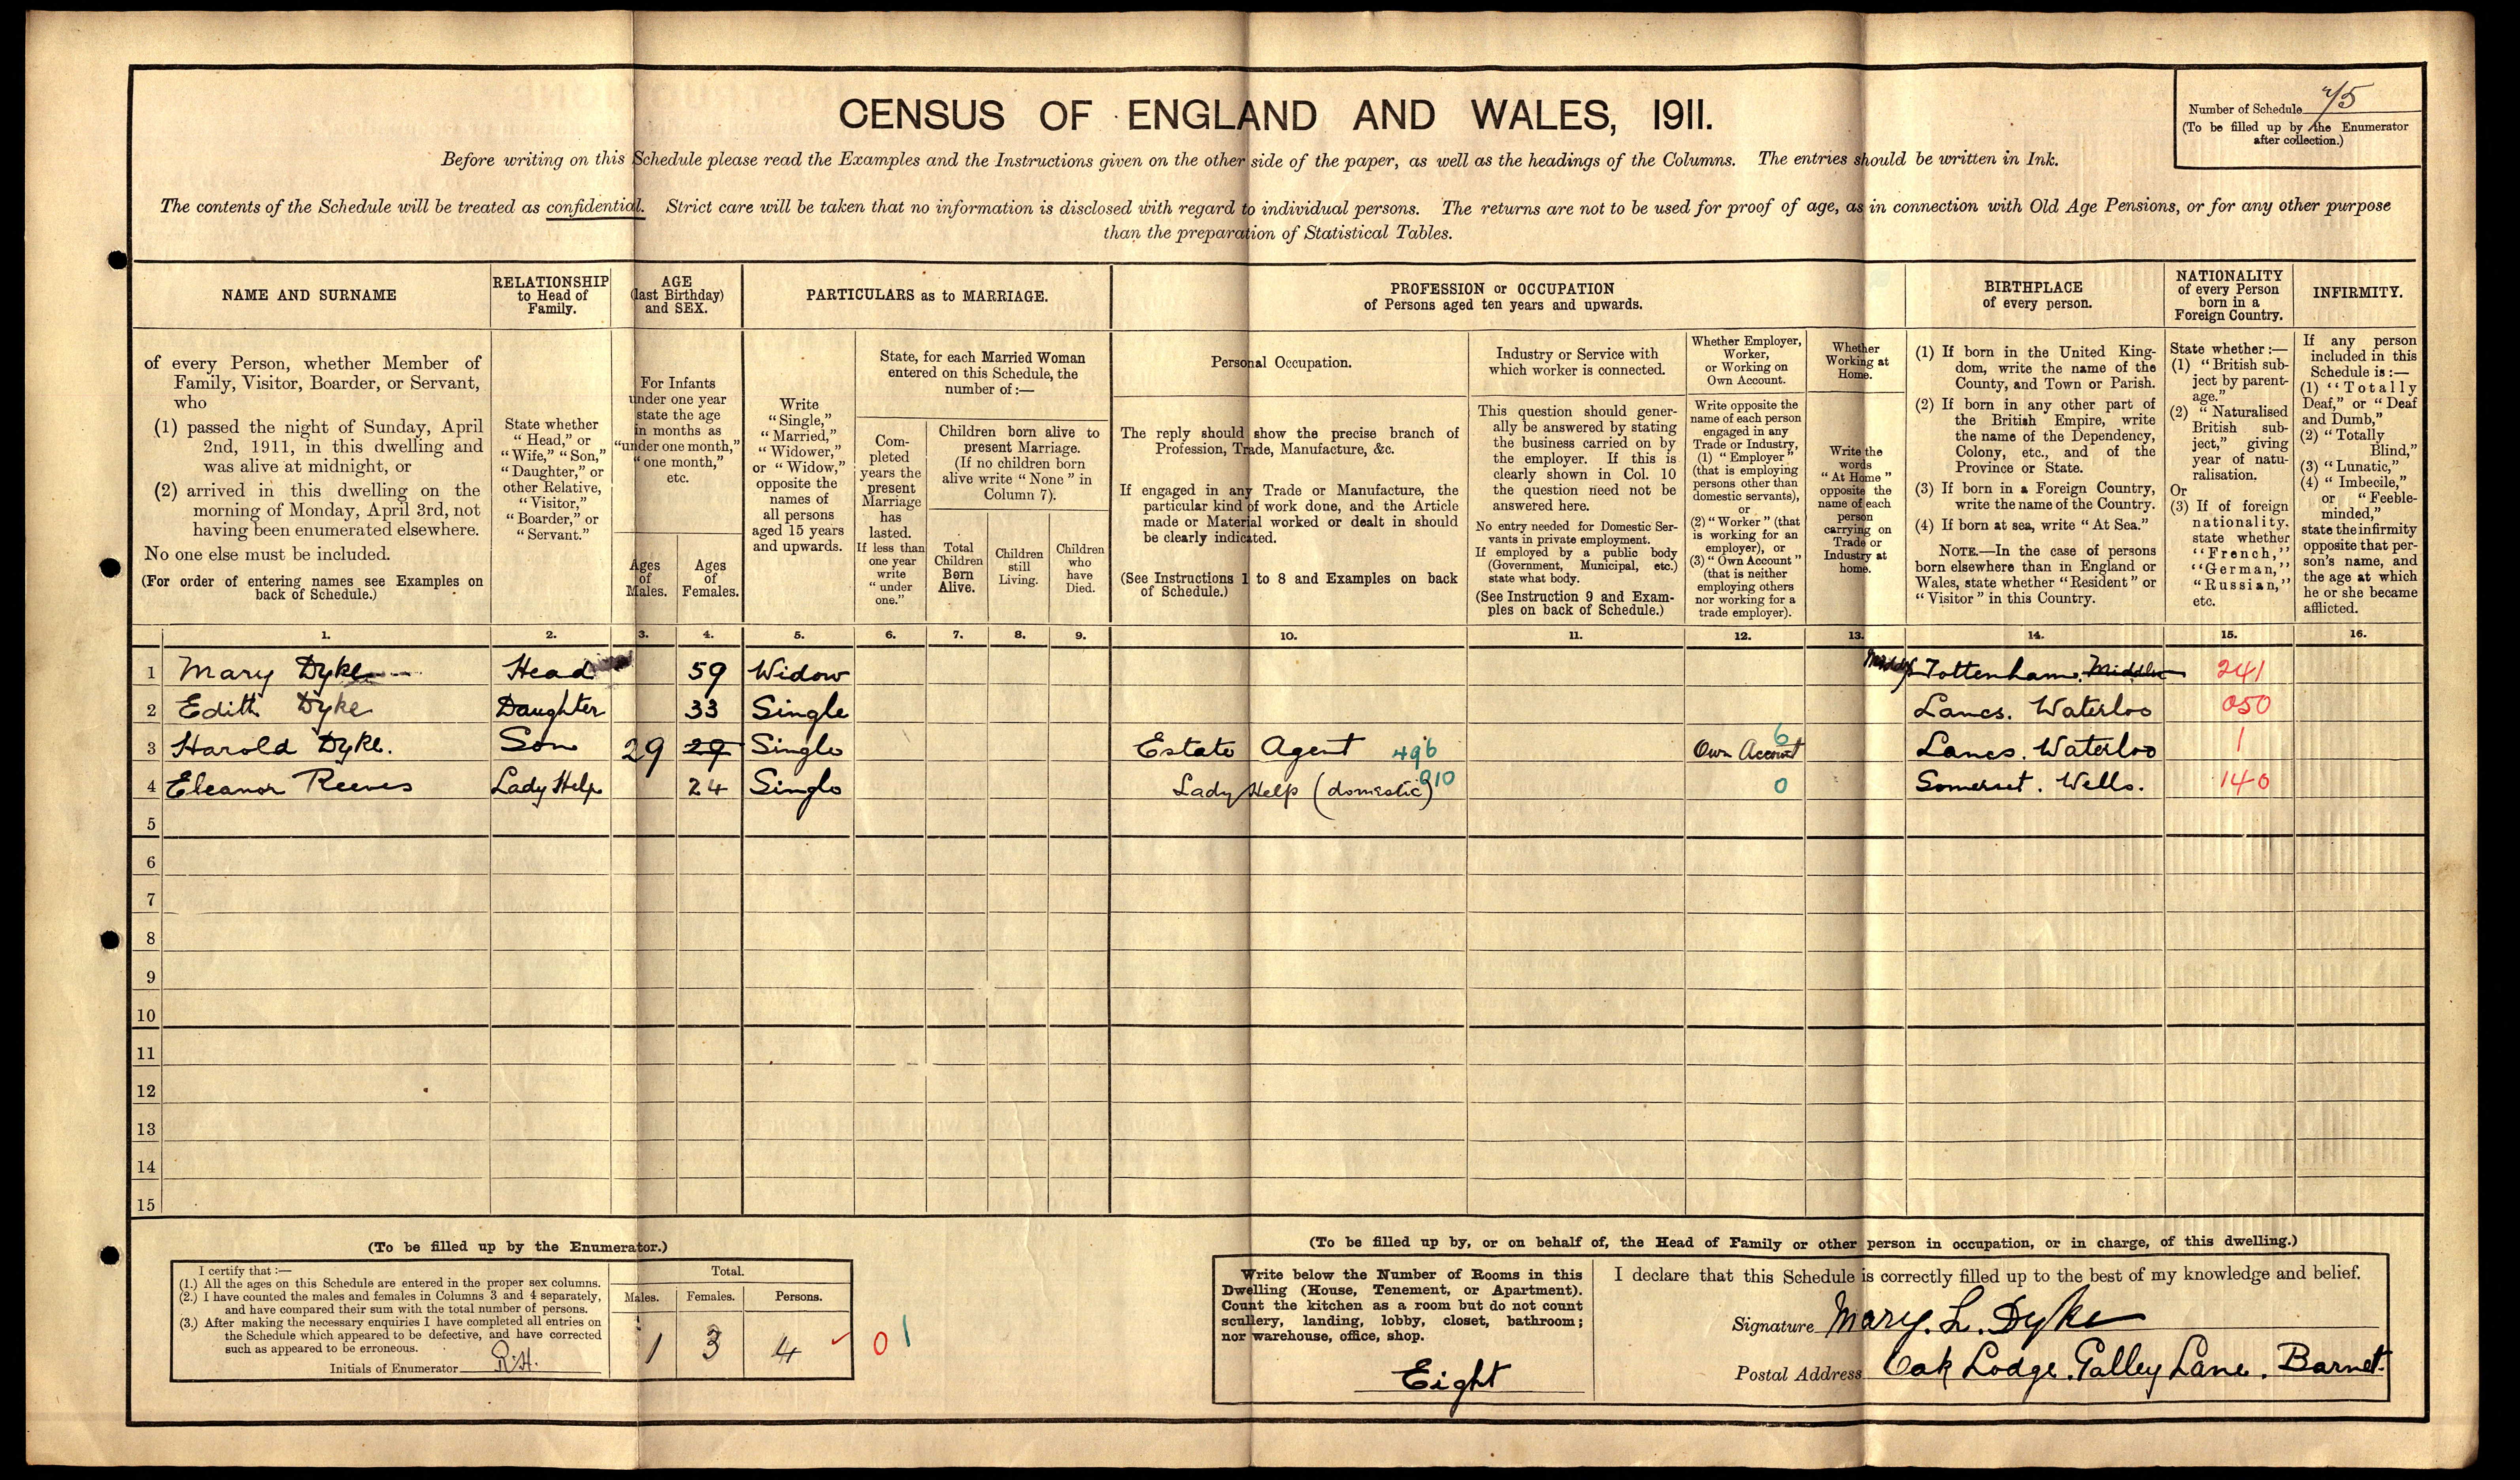 CENSUS OF ENGLAND AND WALES, 1911.
Number of Schedule
(To be filled up by the Enumerator
after collection.)
Before writing on this Schedule please read the Examples and the Instructions given on the other side of the paper, as well as the headings of the Columns. The entries should be written in Ink.
The contents of the Schedule will be treated as confidential. Strict care will be taken that no information is disclosed with regard to individual persons. The returns are not to be used for proof of age, as in connection with Old Age Pensions, or for any other purpose
than the preparation of Statistical Tables.
NAME AND SURNAME
of every Person, whether Member of
Family, Visitor, Boarder, or Servant,
who
(1) passed the night of Sunday, April
2nd, 1911, in this dwelling and
was alive at midnight, or
(2) arrived in this dwelling on the
morning of Monday, April 3rd, not
having been enumerated elsewhere.
No one else must be included.
(For order of entering names see Examples on
back of Schedule.)
RELATIONSHIP
to Head of
Family.
State whether
"Head," or
"Wife," "Son,"
"Daughter," or
other Relative,
"Visitor,"
"Boarder," or
"Servant."
AGE
(last Birthday)
and SEX.
For Infants
under one year
state the age
in months as
"under one month,"
"one month,"
etc.
Ages
of
Males.
Ages
of
Females.
PARTICULARS as to MARRIAGE.
Write
"Single,"
"Married,"
"Widower,"
or "Widow,"
opposite the
names of
all persons
aged 15 years
and upwards.
State, for each Married Woman
entered on this Schedule, the
number of:—
Com-
pleted
years the
present
Marriage
has
lasted.
If less than
one year
write
"under
one."
Children born alive to
present Marriage.
(If no children born
alive write "None" in
Column 7).
Total
Children
Born
Alive.
Children
still
Living.
Children
who
have
Died.
PROFESSION or OCCUPATION
of Persons aged ten years and upwards.
Personal Occupation.
The reply should show the precise branch of
Profession, Trade, Manufacture, &c.
If engaged in any Trade or Manufacture, the
particular kind of work done, and the Article
made or Material worked or dealt in should
be clearly indicated.
(See Instructions 1 to 8 and Examples on back
of Schedule.)
Industry or Service with
which worker is connected.
This question should gener-
ally be answered by stating
the business carried on by
the employer. If this is
clearly shown in Col. 10
the question need not be
answered here.
No entry needed for Domestic Ser-
vants in private employment.
If employed by a public body
(Government, Municipal, etc.)
state what body.
(See Instruction 9 and Exam-
ples on back of Schedule.)
Whether Employer,
Worker,
or Working on
Own Account.
Write opposite the
name of each person
engaged in any
Trade or Industry,
(1) "Employer"
(that is employing
persons other than
domestic servants),
or
(2) "Worker" (that
is working for an
employer), or
(3) "Own Account"
(that is neither
employing others
nor working for a
trade employer).
Whether
Working at
Home.
Write the
words
"At Home"
opposite the
name of each
person
carrying on
Trade or
Industry at
home.
BIRTHPLACE
of every person.
(1) If born in the United King-
dom, write the name of the
County, and Town or Parish.
(2) If born in any other part of
the British Empire, write
the name of the Dependency,
Colony, etc., and of the
Province or State.
(3) If born in a Foreign Country,
write the name of the Country.
(4) If born at sea, write "At Sea."
NOTE.—In the case of persons
born elsewhere than in England or
Wales, state whether "Resident" or
"Visitor" in this Country.
NATIONALITY
of every Person
born in a
Foreign Country.
State whether:—
(1) "British sub-
ject by parent-
age."
(2) "Naturalised
British sub-
ject," giving
year of natu-
ralisation.
Or
(3) If of foreign
nationality,
state whether
"French,"
"German,"
"Russian,"
etc.
INFIRMITY.
If any person
included in this
Schedule is:—
(1) "Totally
Deaf," or "Deaf
and Dumb,"
(2) "Totally
Blind,"
(3) "Lunatic,"
(4) "Imbecile,"
or "Feeble-
minded,"
state the infirmity
opposite that per-
son's name, and
the age at which
he or she became
afflicted.
1. 2. 3. 4. 5. 6. 7. 8. 9. 10. 11. 12. 13. 14. 15. 16.
1 Mary Dyke Head 59 Widow Middx Tottenham. 241
2 Edith Dyke Daughter 33 Single Lancs. Waterloo 050
3 Harold Dyke. Son 29 29 Single Estate Agent 496 Own Account 6 Lancs. Waterloo 1
4 Eleanor Reeves Lady Help 24 Single Lady Help (domestic) 910 0 Somerset. Wells. 140
5
6
7
8
9
10
11
12
13
14
15
(To be filled up by the Enumerator.)
I certify that:—
(1.) All the ages on this Schedule are entered in the proper sex columns.
(2.) I have counted the males and females in Columns 3 and 4 separately,
and have compared their sum with the total number of persons.
(3.) After making the necessary enquiries I have completed all entries on
the Schedule which appeared to be defective, and have corrected
such as appeared to be erroneous.
Initials of Enumerator R.H.
Total.
Males. Females. Persons.
1 3 4 0 1
(To be filled up by, or on behalf of, the Head of Family or other person in occupation, or in charge, of this dwelling.)
Write below the Number of Rooms in this
Dwelling (House, Tenement, or Apartment).
Count the kitchen as a room but do not count
scullery, landing, lobby, closet, bathroom;
nor warehouse, office, shop.
Eight
I declare that this Schedule is correctly filled up to the best of my knowledge and belief.
Signature Mary. L. Dyke
Postal Address Oak Lodge. Galley Lane. Barnet.